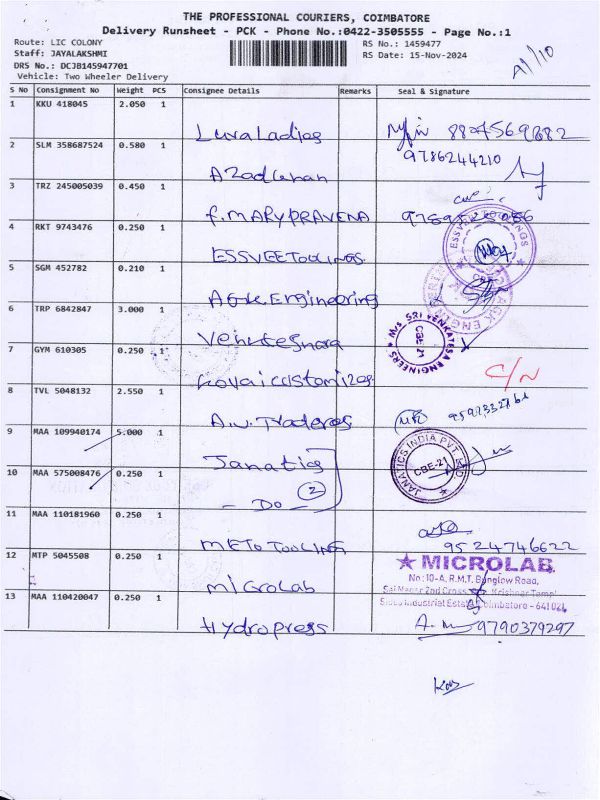 THE PROFESSIONAL COURIERS, COIMBATORE
Delivery Runsheet - PCK - Phone No.:0422-3505555 - Page No.:1
Route: LIC COLONY RS No.: 1459477
Staff: JAYALAKSHMI RS Date: 15-Nov-2024
DRS No.: DCJB145947701
Vehicle: Two Wheeler Delivery
A1/10
S No Consignment No Weight PCS Consignee Details Remarks Seal & Signature
1 KKU 418045 2.050 1
Luvaladies 8847569282
2 SLM 358687524 0.580 1 9786244210
Azad
3 TRZ 245005039 0.450 1
F. MARYPRAVENA
4 RKT 9743476 0.250 1
ESSVEETOOLINGS ESSVEE TOOLINGS
5 SGM 452782 0.210 1
Engineering
6 TRP 6842847 3.000 1
M/s SRI VENKATESA ENGINEERS CBE-21
7 GYM 610305 0.250 1
Kovai customizes C/N
8 TVL 5048132 2.550 1
A.V. Traderes
9 MAA 109940174 5.000 1
Janatics JANATICS INDIA PVT. LTD CBE-21
10 MAA 575008476 0.250 1
- DO - 2
11 MAA 110181960 0.250 1
METO TOOLING 9524746622
12 MTP 5045508 0.250 1 MICROLAB
No:10-A, R.M.T. Bunglow Road,
MicroLab Sai Nagar 2nd Cross
Sidco Industrial Estate, Coimbatore - 641 021.
13 MAA 110420047 0.250 1
Hydropress 9790379297